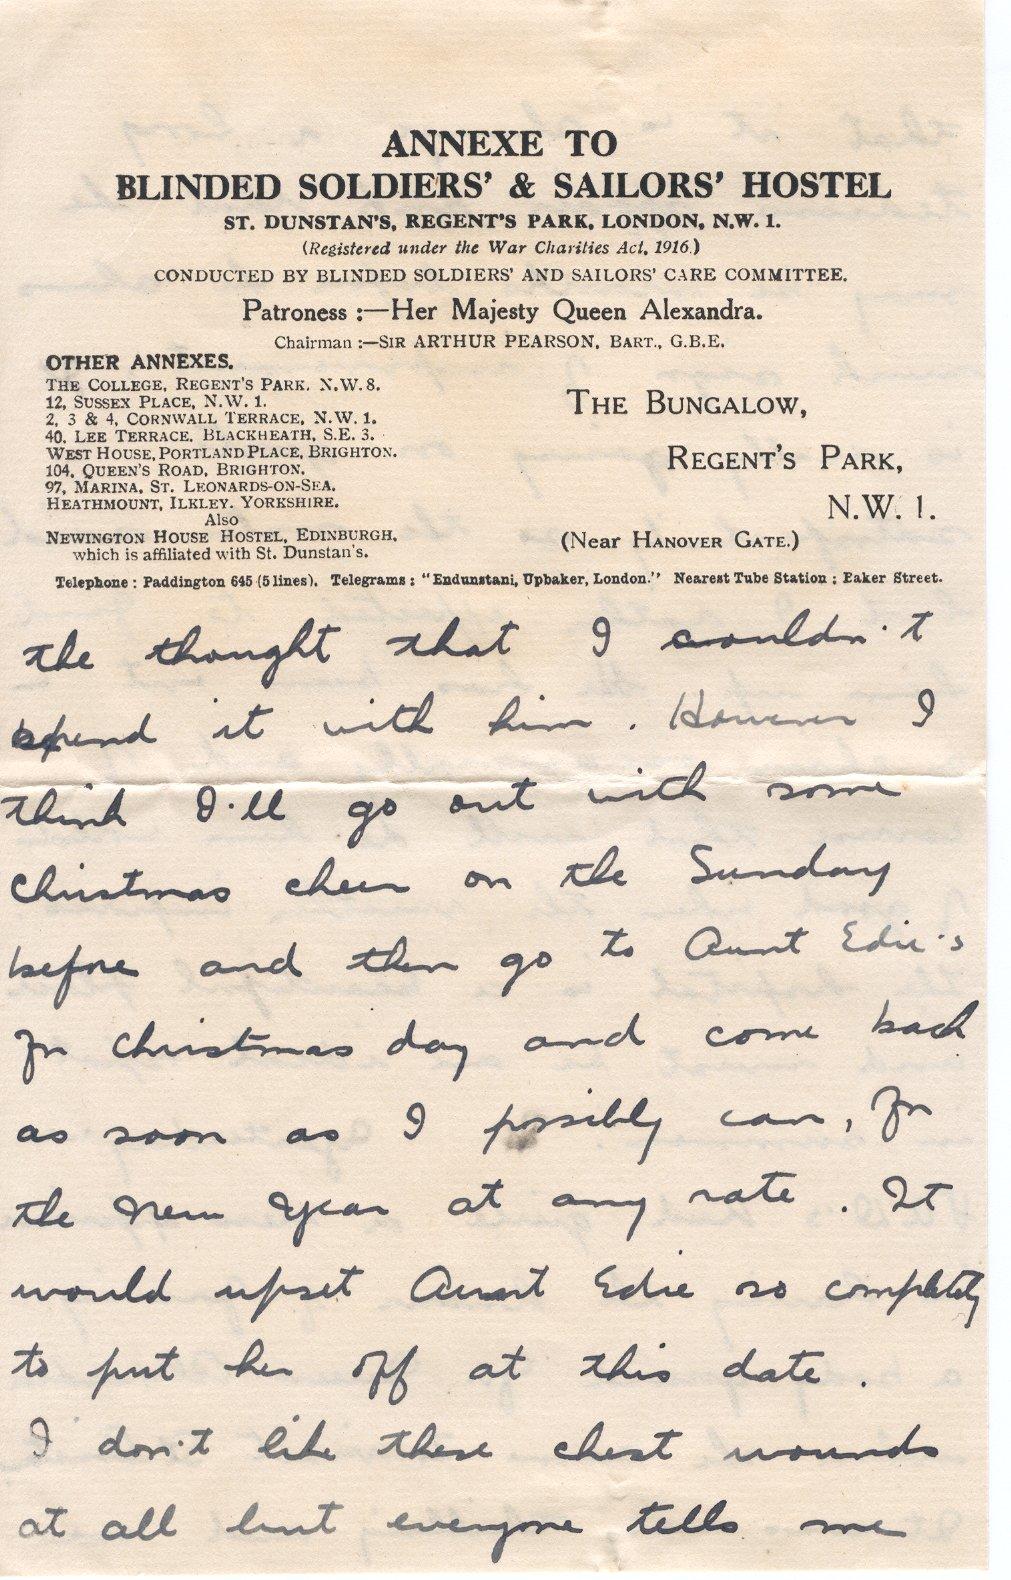 ANNEXE TO
BLINDED SOLDIERS' & SAILORS' HOSTEL
ST. DUNSTAN'S, REGENT'S PARK, LONDON, N.W. 1.
(Registered under the War Charities Act, 1916.)
CONDUCTED BY BLINDED SOLDIERS' AND SAILORS' CARE COMMITTEE.
Patroness :—Her Majesty Queen Alexandra.
Chairman :—SIR ARTHUR PEARSON, BART., G.B.E.
OTHER ANNEXES.
THE COLLEGE, REGENT'S PARK, N.W. 8.
12, SUSSEX PLACE, N.W. 1.
2, 3 & 4, CORNWALL TERRACE, N.W. 1.
40, LEE TERRACE, BLACKHEATH, S.E. 3.
WEST HOUSE, PORTLAND PLACE, BRIGHTON.
104, QUEEN'S ROAD, BRIGHTON.
97, MARINA, ST. LEONARDS-ON-SEA.
HEATHMOUNT, ILKLEY, YORKSHIRE.
Also
NEWINGTON HOUSE HOSTEL, EDINBURGH,
which is affiliated with St. Dunstan's.
THE BUNGALOW,
REGENT'S PARK,
N.W. 1.
(Near HANOVER GATE.)
Telephone : Paddington 645 (5 lines). Telegrams : "Endunstani, Upbaker, London." Nearest Tube Station : Baker Street.
the thought that I couldn't
spend it with him. However I
think I'll go out with some
Christmas cheer on the Sunday
before and then go to Aunt Edie's
for Christmas day and come back
as soon as I possibly can, for
the New Year at any rate. It
would upset Aunt Edie so completely
to put her off at this date.
I don't like these chest wounds
at all but everyone tells me